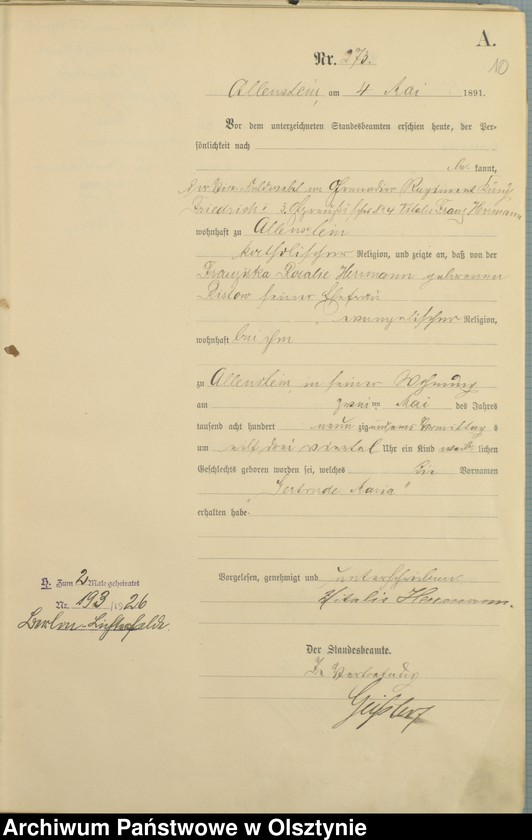 A.
10
Nr. 273.
Allenstein, am 4 Mai 1891.
Vor dem unterzeichneten Standesbeamten erschien heute, der Per-
sönlichkeit nach
be kannt,
der Vice-Feldwebel im Grenadier Regiment König
Friedrich 3. Ostpreußisches No 4 Vitalis Franz Hermann
wohnhaft zu Allenstein
katholischer Religion, und zeigte an, daß von der
Franziska Rosalie Hermann geborenen
Ristow seiner Ehefrau
evangelischer Religion,
wohnhaft bei ihm
zu Allenstein in seiner Wohnung
am zweiten Mai des Jahres
tausend acht hundert neunzig und eins Vormittags
um elf drei viertel Uhr ein Kind weiblichen
Geschlechts geboren worden sei, welches die Vornamen
"Gertrude Maria"
erhalten habe.
Vorgelesen, genehmigt und unterschrieben
Vitalis Hermann.
Der Standesbeamte.
In Vertretung
H. Zum 2 Male geheiratet
Nr. 193/1926
Berlin-Lichterfelde.
Archiwum Państwowe w Olsztynie